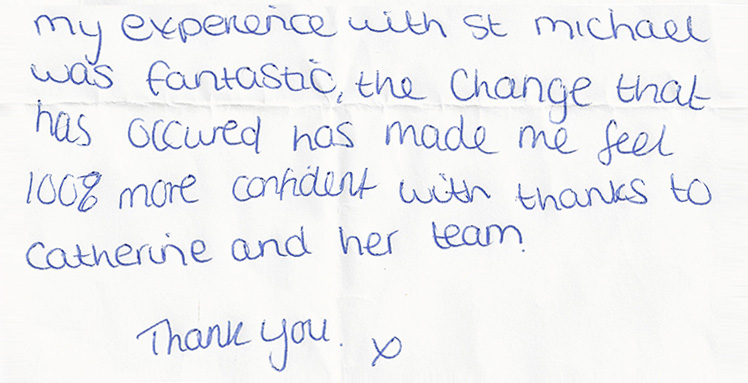 my experience with st michael
was fantastic, the Change that
has occured has made me feel
100% more confident with thanks to
Catherine and her team.
Thank you. x